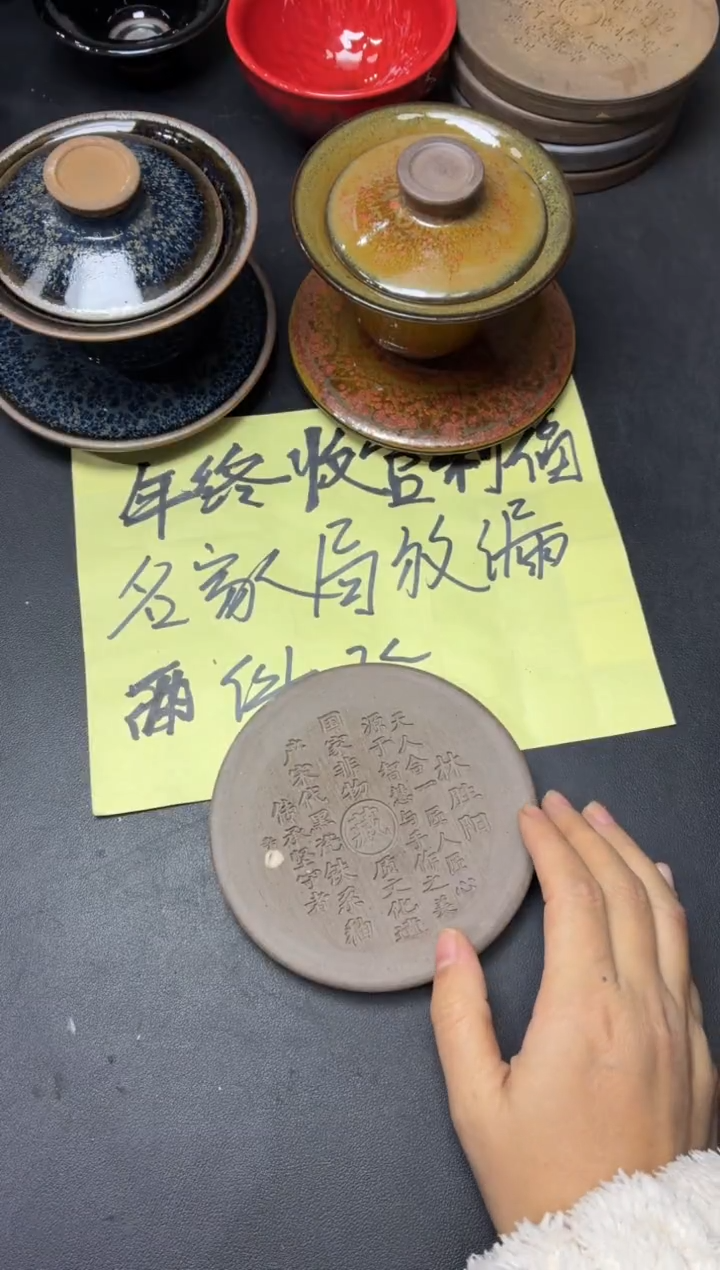 年终收官利福
名家人局放漏
两
林胜阳
天人合一匠人匠心
源于与手作之美
国家非物质文化遗
藏
产宋代黑铁系釉
传承坚守者